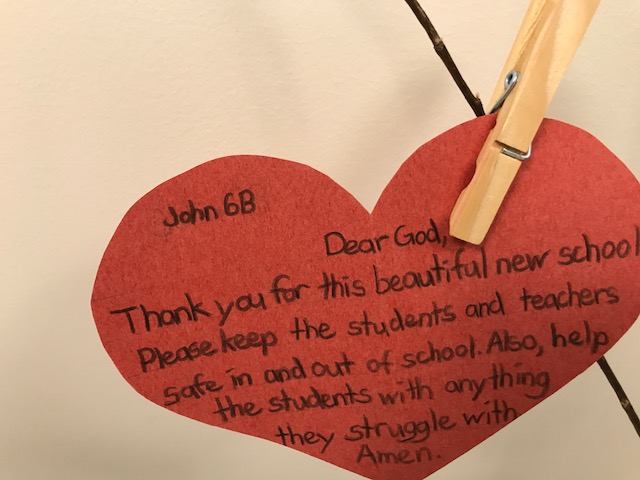 John 6B
Dear God,
Thank you for this beautiful new school
Please keep the students and teachers
safe in and out of school. Also, help
the students with anything
they struggle with
Amen.